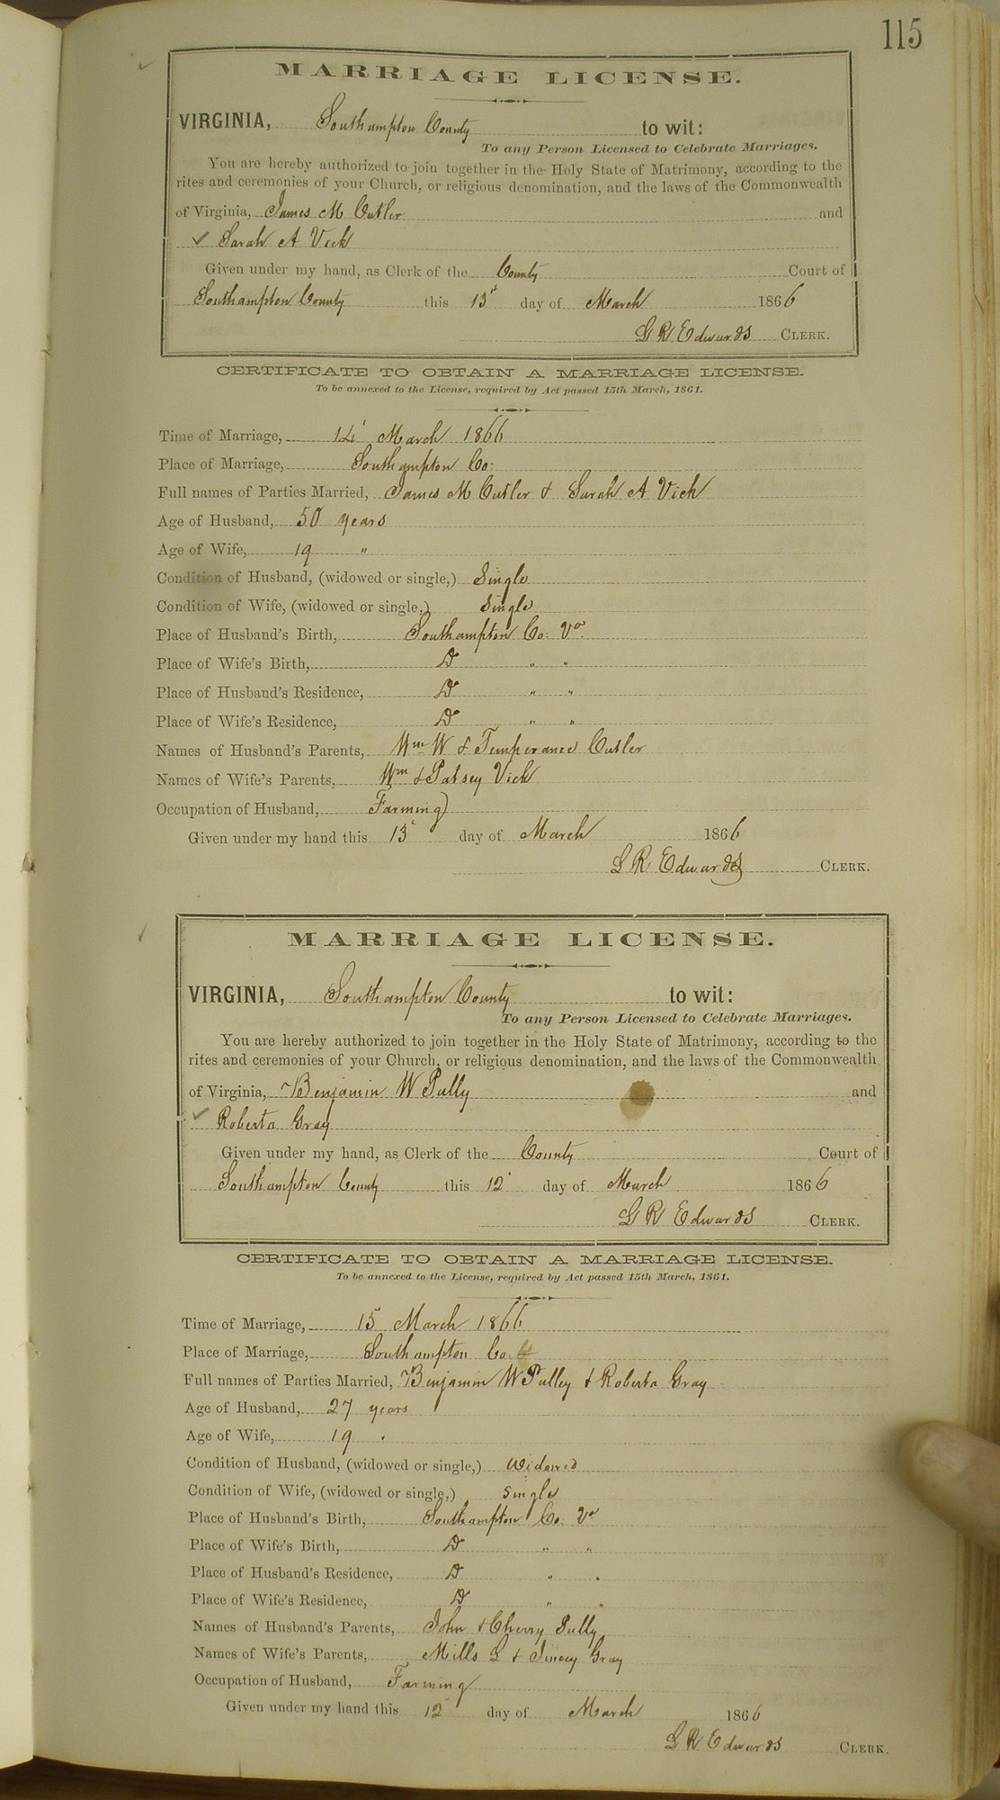 115
MARRIAGE LICENSE.
VIRGINIA, Southampton County to wit:
To any Person Licensed to Celebrate Marriages.
You are hereby authorized to join together in the Holy State of Matrimony, according to the
rites and ceremonies of your Church, or religious denomination, and the laws of the Commonwealth
of Virginia, James M Cutler and
Sarah A Vick
Given under my hand, as Clerk of the County Court of
Southampton County this 13 day of March 1866
L R Edwards CLERK.
CERTIFICATE TO OBTAIN A MARRIAGE LICENSE.
To be annexed to the License, required by Act passed 15th March, 1861.
Time of Marriage, 14 March 1866
Place of Marriage, Southampton Co:
Full names of Parties Married, James M Cutler & Sarah A Vick
Age of Husband, 50 years
Age of Wife, 19 "
Condition of Husband, (widowed or single,) Single
Condition of Wife, (widowed or single,) Single
Place of Husband's Birth, Southampton Co: Va
Place of Wife's Birth, Do " "
Place of Husband's Residence, Do " "
Place of Wife's Residence, Do " "
Names of Husband's Parents, Wm W & Temperance Cutler
Names of Wife's Parents, Wm & Patsey Vick
Occupation of Husband, Farming
Given under my hand this 13 day of March 1866
L R Edwards CLERK.
MARRIAGE LICENSE.
VIRGINIA, Southampton County to wit:
To any Person Licensed to Celebrate Marriages.
You are hereby authorized to join together in the Holy State of Matrimony, according to the
rites and ceremonies of your Church, or religious denomination, and the laws of the Commonwealth
of Virginia, Benjamin W Pully and
Roberta Gray
Given under my hand, as Clerk of the County Court of
Southampton County this 12 day of March 1866
L R Edwards CLERK.
CERTIFICATE TO OBTAIN A MARRIAGE LICENSE.
To be annexed to the License, required by Act passed 15th March, 1861.
Time of Marriage, 15 March 1866
Place of Marriage, Southampton Co.
Full names of Parties Married, Benjamin W Pulley & Roberta Gray
Age of Husband, 27 years
Age of Wife, 19 "
Condition of Husband, (widowed or single,) Widowed
Condition of Wife, (widowed or single,) Single
Place of Husband's Birth, Southampton Co: Va
Place of Wife's Birth, Do " "
Place of Husband's Residence, Do " "
Place of Wife's Residence, Do " "
Names of Husband's Parents, John & Cherry Pully
Names of Wife's Parents, Mills L & Gray
Occupation of Husband, Farming
Given under my hand this 12 day of March 1866
L R Edwards CLERK.